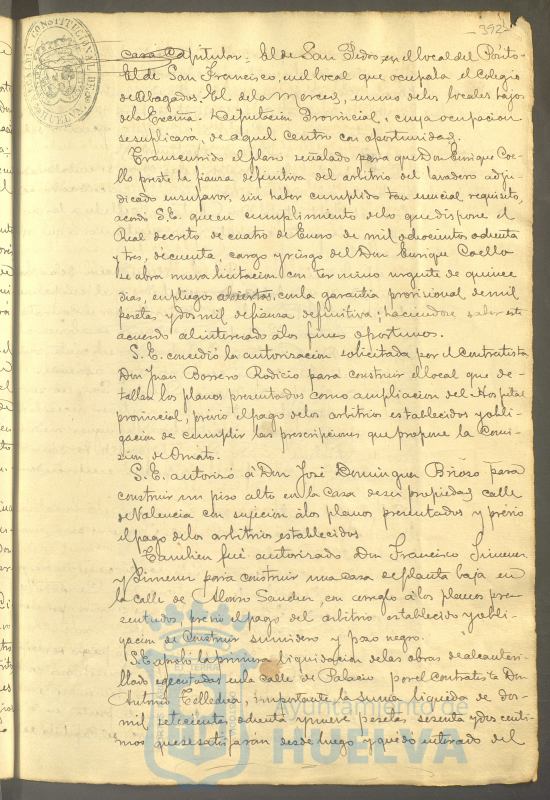 392
casa Capitular. El de San Pedro, en el local del Pósito.
El de San Francisco, en el local que ocupaba el Colegio
de Abogados. El de la Merced, en uno de los locales bajos
de la Excma. Diputacion Provincial, cuya ocupacion
se suplicará, de aquel centro con oportunidad.
Transcurrido el plazo señalado para que Don Enrique Coe-
llo preste la fianza definitiva del arbitrio del lavadero adju-
dicado en su favor, sin haber cumplido tan esencial requisito,
acordó S.E. que en cumplimiento de lo que dispone el
Real decreto de cuatro de Enero de mil ochocientos ochenta
y tres, de cuenta, cargo y riesgo del Don Enrique Coello
se abra nueva licitacion con termino urgente de quince
dias, en pliegos abiertos, con la garantia provisional de mil
pesetas y dos mil de fianza definitiva; haciendose saber este
acuerdo al interesado á los fines oportunos.
S.E. concedió la autorizacion solicitada por el Contratista
Don Juan Borrero Rodicio para construir el local que de-
tallan los planos presentados como ampliacion del Hospital
provincial, previo el pago de los arbitrios establecidos y obli-
gacion de cumplir las prescripciones que propone la Comi-
sion de Ornato.
S.E. autorizó á Don José Dominguez Brioso para
construir un piso alto en la casa de su propiedad calle
de Valencia con sujecion á los planos presentados y previo
el pago de los arbitrios establecidos.
Tambien fué autorizado Don Francisco Jimenez
y Jimenez para construir una casa de planta baja en
la calle de Alonso Sanchez, con arreglo á los planos pre-
sentados, previo el pago del arbitrio establecido y obli-
gacion de construir sumidero y pozo negro.
S.E. aprobó la primera liquidacion de las obras de alcantari-
llado ejecutadas en la calle de Palacio por el contratista Don
Antonio importante la suma liquida de dos
mil setecientas ochenta y nueve pesetas sesenta y dos centi-
mos que se satisfarán desde luego y quedó enterado del
Ayuntamiento de
HUELVA